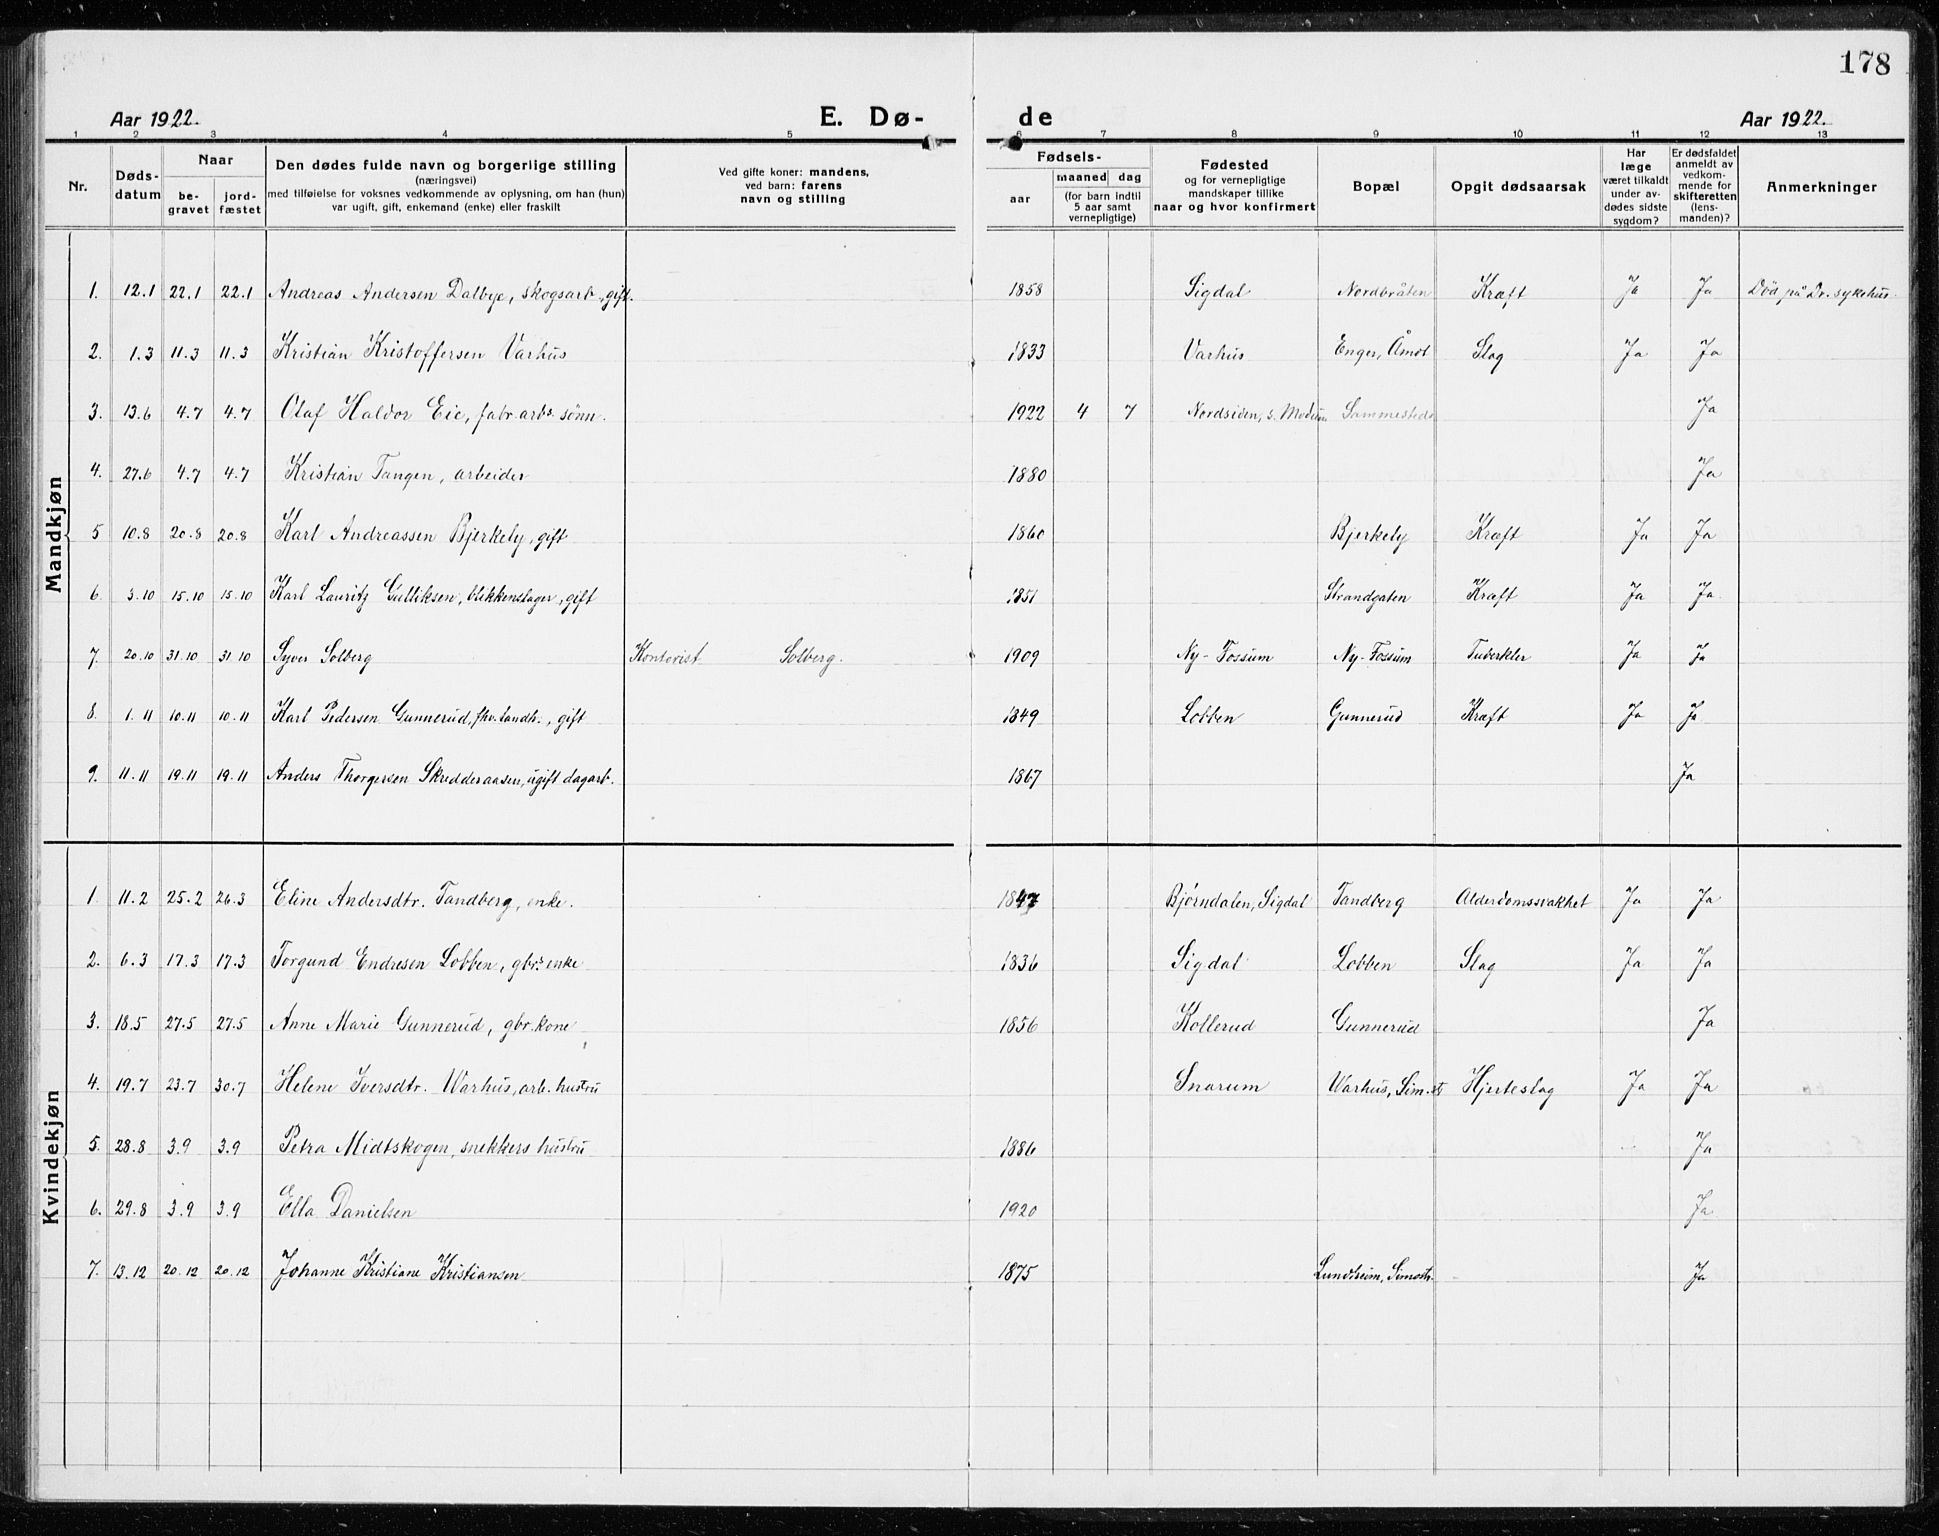 178
Aar 1922.
E. Dø-
de
Aar 1922.
1 2 3 4 5 6 7 8 9 10 11 12 13
Nr.
Døds-
datum
Naar
be-
gravet
jord-
fæstet
Den dødes fulde navn og borgerlige stilling
(næringsvei)
med tilføielse for voksnes vedkommende av oplysning, om han (hun)
var ugift, gift, enkemand (enke) eller fraskilt
Ved gifte koner: mandens,
ved barn: farens
navn og stilling
Fødsels-
aar
maaned
dag
(for barn indtil
5 aar samt
vernepligtige)
Fødested
og for vernepligtige
mandskaper tillike
naar og hvor konfirmert
Bopæl
Opgit dødsaarsak
Har
læge
været tilkaldt
under av-
dødes sidste
sygdom?
Er dødsfaldet
anmeldt av
vedkom-
mende for
skifteretten
(lens-
manden)?
Anmerkninger
Mandkjøn
1. 12.1 22.1 22.1 Andreas Andersen Dalbye, skogsarb., gift. 1858 Sigdal Nordbråten Kræft Ja Ja Død på Dr. sykehus.
2. 1.3 11.3 11.3 Kristian Kristoffersen Varhus 1833 Varhus Enger, Åmot Slag Ja Ja
3. 13.6 4.7 4.7 Olaf Haldor Eie, fabr.arbs. sønn. 1922 4 7 Nordsiden, s. Modum Sammesteds Ja
4. 27.6 4.7 4.7 Kristian Tangen, arbeider 1880 Ja
5 10.8 20.8 20.8 Karl Andreassen Bjerkely, gift 1860 Bjerkely Kræft Ja Ja
6. 3.10 15.10 15.10 Karl Lauritz Gulliksen, blikkenslager, gift 1851 Strandgaten Kræft Ja Ja
7. 20.10 31.10 31.10 Syver Solberg Kontorist Solberg. 1909 Ny-Fossum Ny-Fossum Tuberkler Ja Ja
8. 1.11 10.11 10.11 Karl Pedersen Gunnerud, fhv. landh., gift 1849 Lobben Gunnerud Kræft Ja Ja
9. 11.11 19.11 19.11 Anders Thorgersen Skredderaasen, ugift dagarb. 1867 Ja
Kvindekjøn
1. 11.2 25.2 26.3 Eline Andersdtr. Tandberg, enke. 1847 Bjørndalen, Sigdal Tandberg Alderdomssvakhet Ja Ja
2. 6.3 17.3 17.3 Torgund Endresen Lobben, gbrs. enke 1836 Sigdal Lobben Slag Ja Ja
3. 18.5 27.5 27.5 Anne Marie Gunnerud, gbr. kone 1856 Kollerud Gunnerud Ja
4. 19.7 23.7 30.7 Helene Iversdtr. Warhus, arb. hustru Snarum Warhus, Sim.st. Hjerteslag Ja Ja
5. 28.8 3.9 3.9 Petra Midtskogen, snekkers hustru 1886 Ja
6. 29.8 3.9 3.9 Ella Danielsen 1920 Ja
7. 13.12 20.12 20.12 Johanne Kristiane Kristiansen 1875 Lundheim, Simostr. Ja